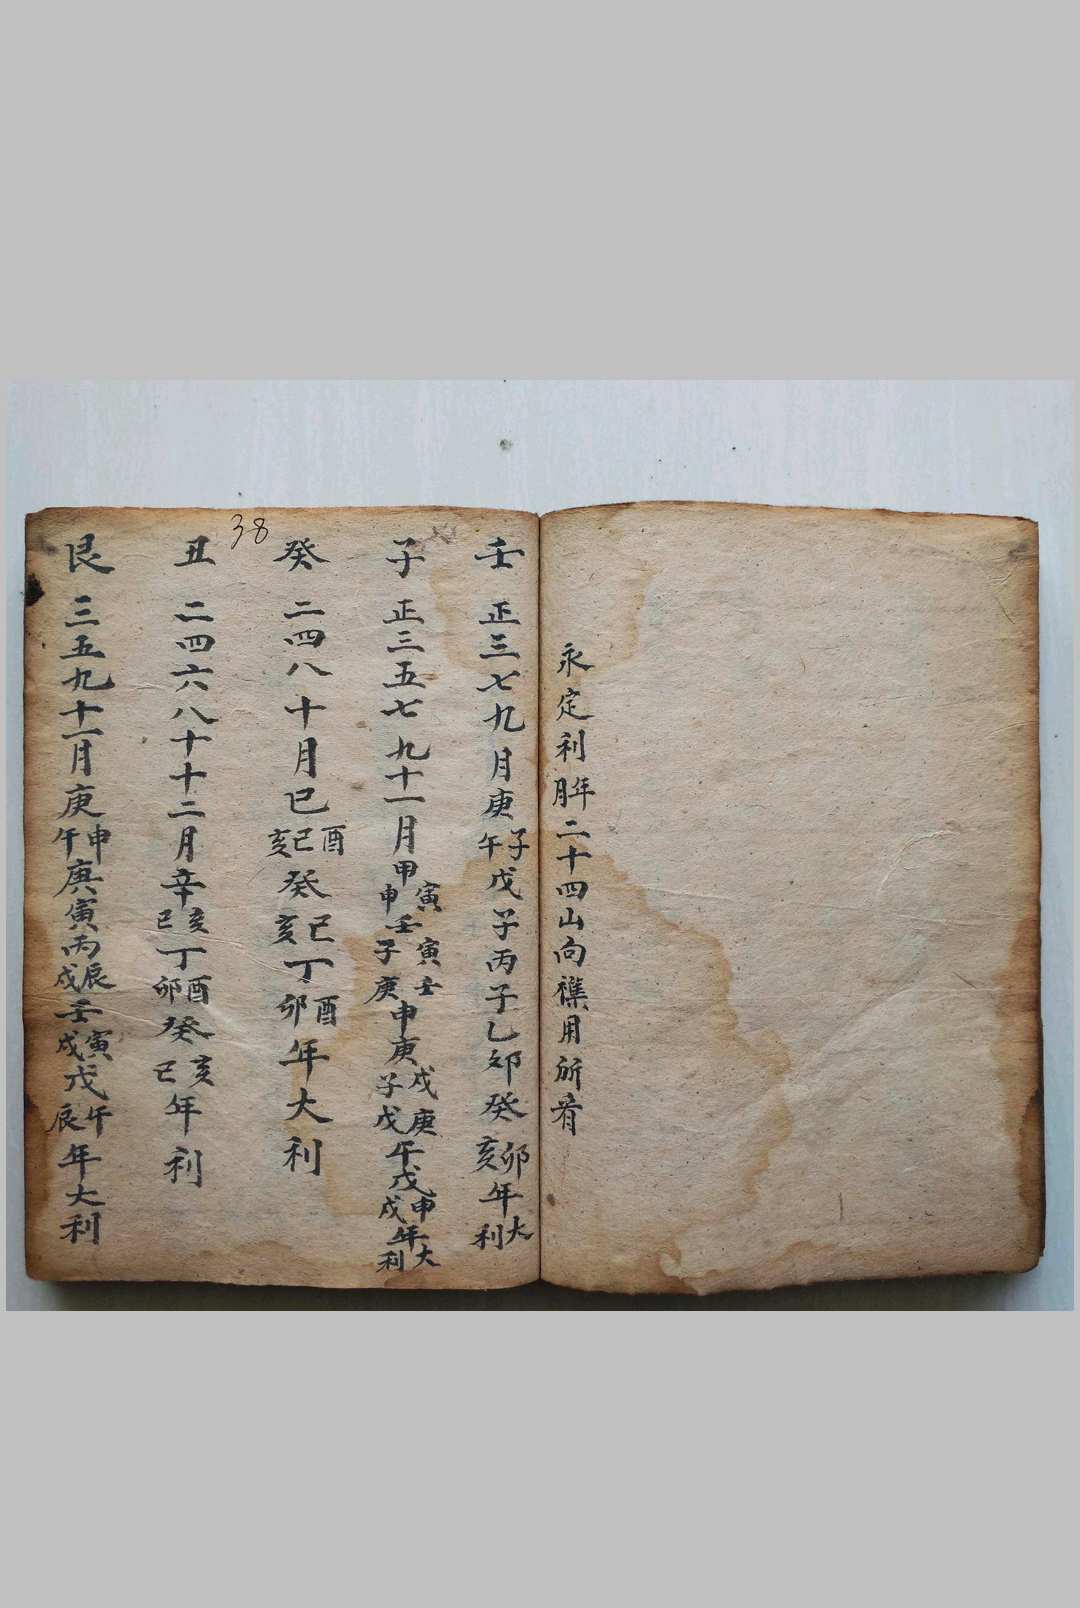 永定利年月二十四山向襍用所看
壬 正三七九月庚子午戊子丙子乙卯癸卯亥年大利
子 正三五七九十一月甲寅申壬寅子壬庚申庚戌子庚戊午戊申戌年大利
癸 二四八十月巳酉己亥癸巳亥丁酉卯年大利
丑 二四六八十十二月辛亥巳丁酉卯癸亥巳年利
艮 三五九十一月庚申午庚寅丙辰戌壬寅戌戊午辰年大利
38